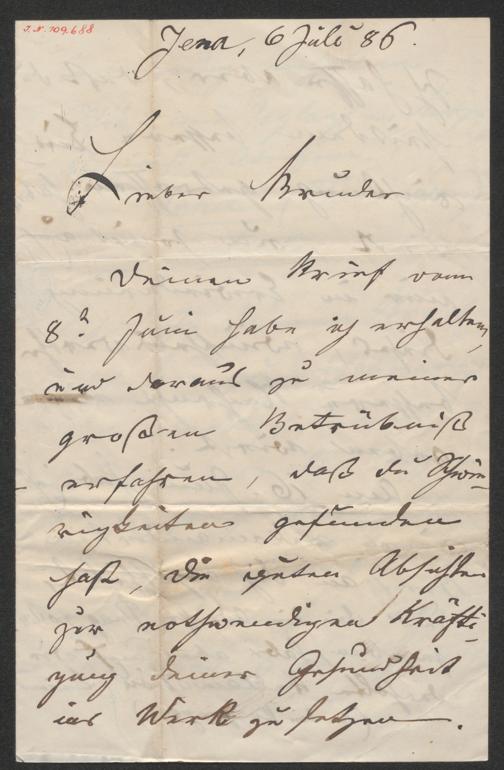 J. N. 109.688
Jena, 6 Juli 86.
Lieber Bruder
Deinen Brief vom
8t Juni habe ich erhalten,
und daraus zu meiner
großen Betrübniß
erfahren, daß du Schwie-
rigkeiten gefunden
hast, die guten Absichten
zur nothwendigen Kräfti-
gung deiner Gesundheit
ins Werk zu setzen.